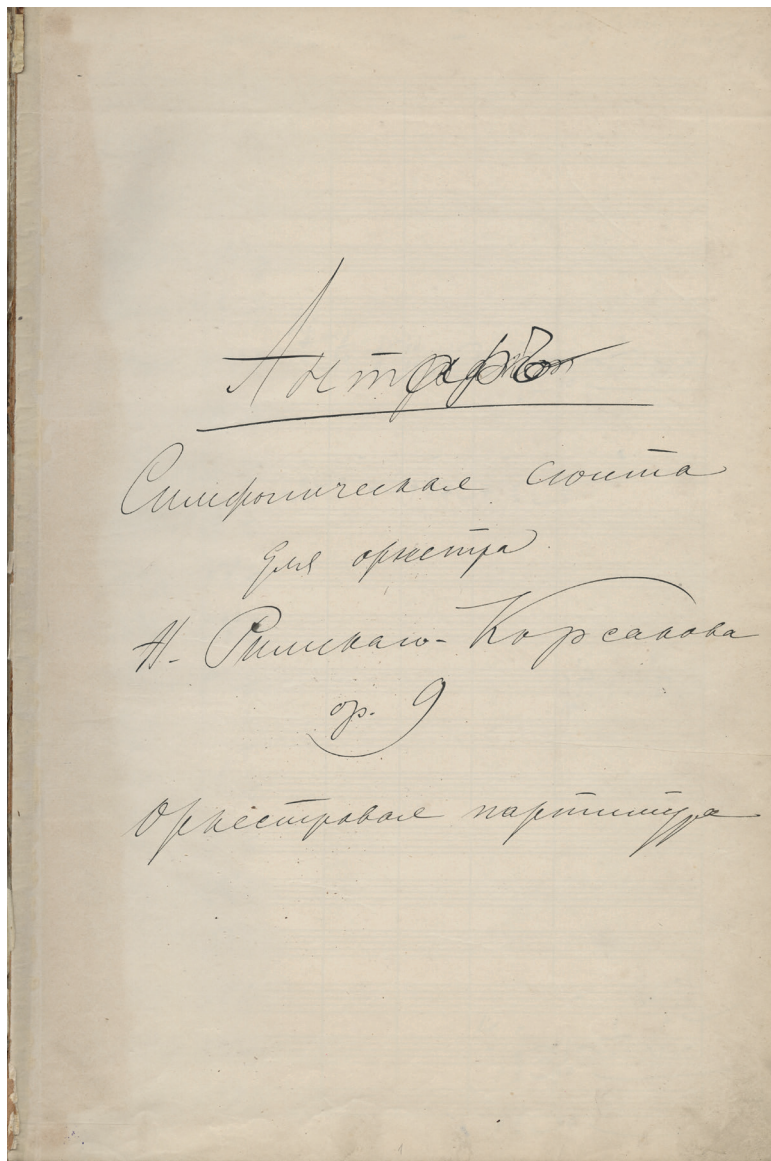 Антаръ
Симфоническая сюита
для оркестра
Н. Римскаго-Корсакова
ор. 9
Оркестровая партитура